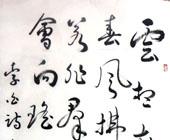 雲想
春風拂
若非羣
會向瑤
李白詩